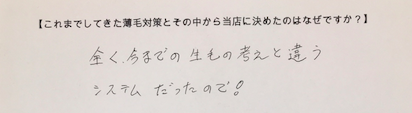 【これまでしてきた薄毛対策とその中から当店に決めたのはなぜですか？】
全く、今までの生毛の考えと違う
システムだったので！